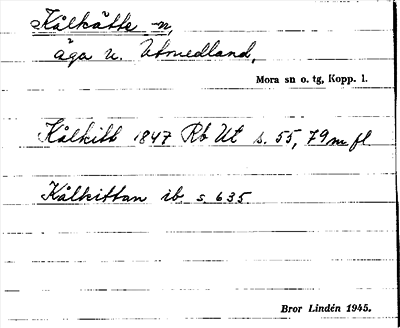 Kålkätte -n,
äga u. Utmedland,
Mora sn o. tg, Kopp. l.
Kålkitt 1847 Rb Ut s. 55, 79 m fl.
Kålkittan ib s. 635.
Bror Lindén 1945.